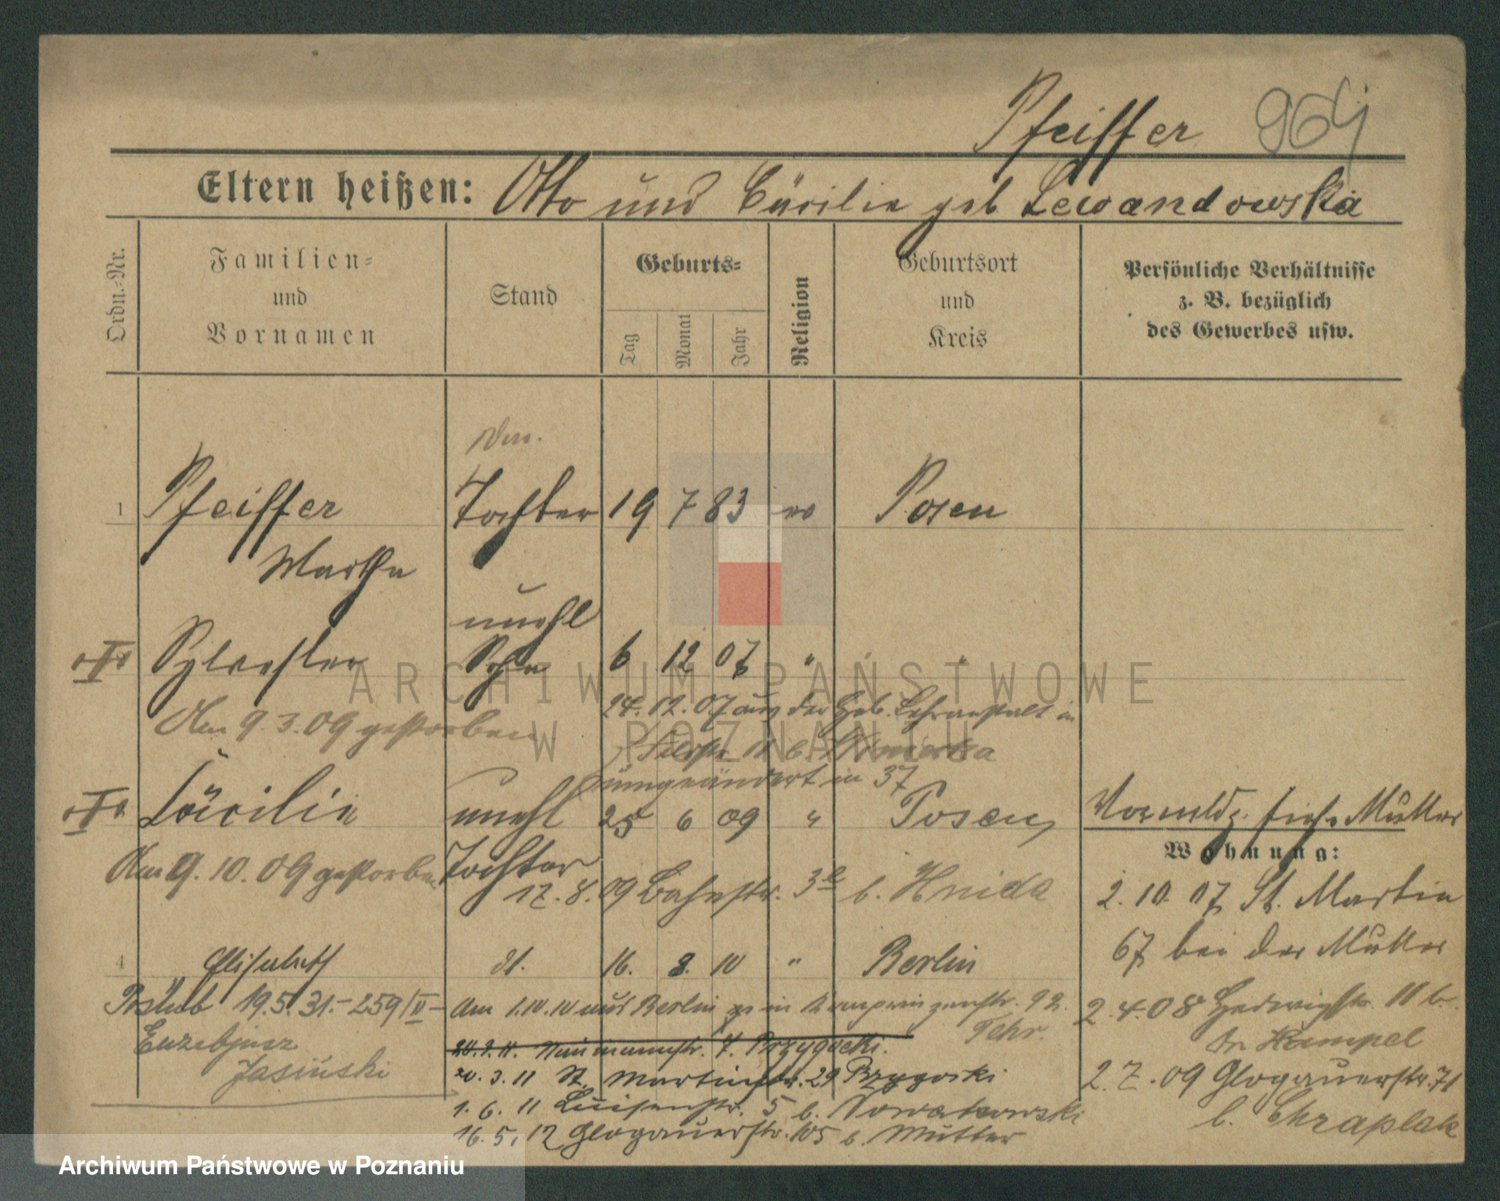 Pfeiffer 964
Eltern heißen: Otto und Cäcilie geb Lewandowska
Ordn.-Nr.
Familien-
und
Vornamen
Stand
Geburts-
Tag
Monat
Jahr
Religion
Geburtsort
und
Kreis
Persönliche Verhältnisse
z. B. bezüglich
des Gewerbes usw.
1 Pfeiffer Tochter 19 7 83 Posen
Martha
unehl
Sylvester Sohn 6 12 07 " "
Am 9.3.09 gestorben
24.12.07 aus der Heb. Lehranstalt in
umgeändert in 37
Cäcilie unehl 25 6 09 " Posen
Tochter
Am 9.10.09 gestorben
12.8.09 Bahnstr. 3 b. Hnida
Mutter
Wohnung:
2.10.07 St. Martin
67 bei der Mutter
2.4.08 Hedwigstr. 11 b.
Hampel
2.7.09 Glogauerstr. 71
b. Chraplak
4 Elisabeth dt. 16. 8. 10 " Berlin
19.5.31.-259/II-
Euzebjusz
Jasiński
Am 1.10.10 aus Berlin 92.
20.2.11. Naumannstr. Przygocki.
20.3.11 St. Martinstr. 29 Przygoski
1.6.11 Luisenstr. 5 b. Nowakowski
16.5.12 Glogauerstr. 105 b. Mutter
ARCHIWUM PAŃSTWOWE
W POZNANIU
Archiwum Państwowe w Poznaniu